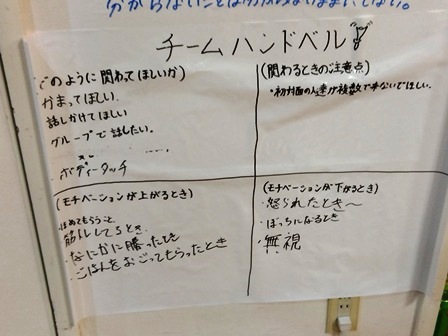 分からないことは分からないままにしない。
チームハンドベル
(どのように関わってほしいか)
かまってほしい
話しかけてほしい
グループで話したい。
ボディータッチ
(関わるときの注意点)
・初対面の人達が複数で来ないでほしい。
(モチベーションが上がるとき)
・ほめてもらうこと
・筋トレしてるとき
・なにかに勝ったとき
・ごはんをおごってもらったとき
(モチベーションが下がるとき)
・怒られたとき〜
・ぼっちになるとき
・無視